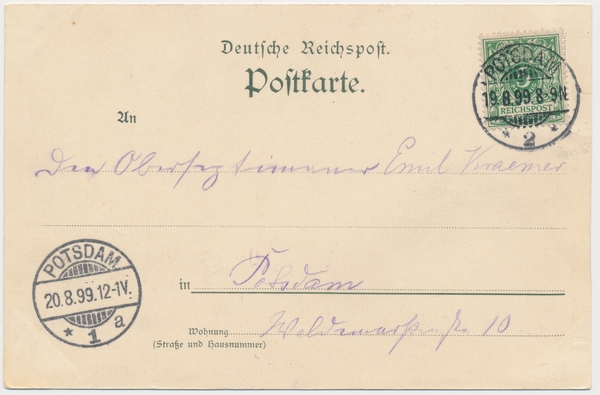 Deutsche Reichspost.
Postkarte.
POTSDAM
19.8.99.8-9N.
* 2 *
5
REICHSPOST
An
Den Obersextimaner Emil Kraemer
POTSDAM
20.8.99.12-1V.
* 1 a
in Potsdam
Wohnung Waldemarstraße 10
(Straße und Hausnummer)